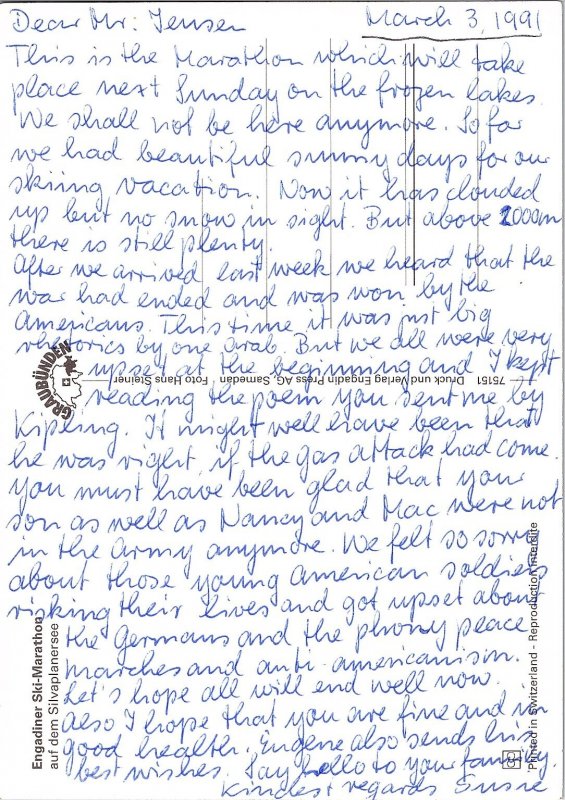 Dear Mr. Jensen March 3, 1991
This is the Marathon which will take
place next Sunday on the frozen lakes.
We shall not be here anymore. So far
we had beautiful sunny days for our
skiing vacation. Now it has clouded
up but no snow in sight. But above 2000m
there is still plenty.
After we arrived last week we heard that the
war had ended and was won by the
Americans. This time it was just big
rhetorics by one arab. But we all were very
upset at the beginning and I kept
reading the poem you sent me by
Kipling. It might well have been that
he was right, if the gas attack had come.
You must have been glad that your
son as well as Nancy and Mac were not
in the Army anymore. We felt so sorry
about those young American soldiers
risking their lives and got upset about
the Germans and the phony peace
marches and anti-americanism.
Let's hope all will end well now.
Also I hope that you are fine and in
good health. Eugene also sends his
best wishes. Say hello to your family.
Kindest regards Susie
GRAUBÜNDEN
75151 Druck und Verlag Engadin Press AG, Samedan Foto Hans Steiner
Engadiner Ski-Marathon
auf dem Silvaplanersee
Printed in Switzerland - Reproduction interdite